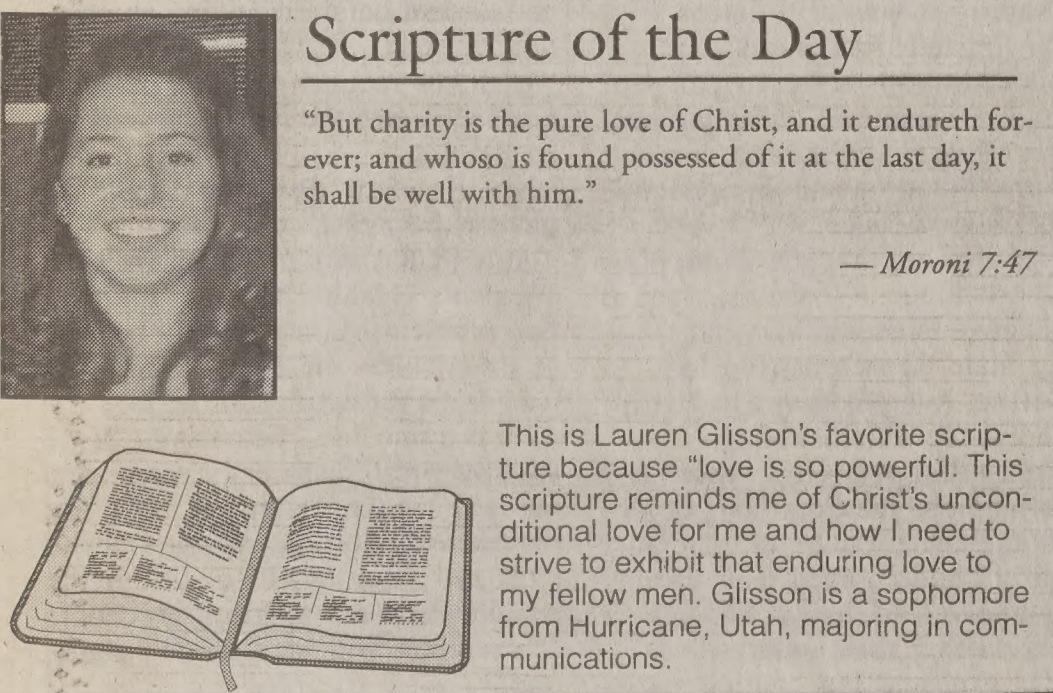 Scripture of the Day
“But charity is the pure love of Christ, and it endureth for-
ever; and whoso is found possessed of it at the last day, it
shall be well with him.”
— Moroni 7:47
This is Lauren Glisson's favorite scrip-
ture because "love is so powerful. This
scripture reminds me of Christ's uncon-
ditional love for me and how I need to
strive to exhibit that enduring love to
my fellow men. Glisson is a sophomore
from Hurricane, Utah, majoring in com-
munications.